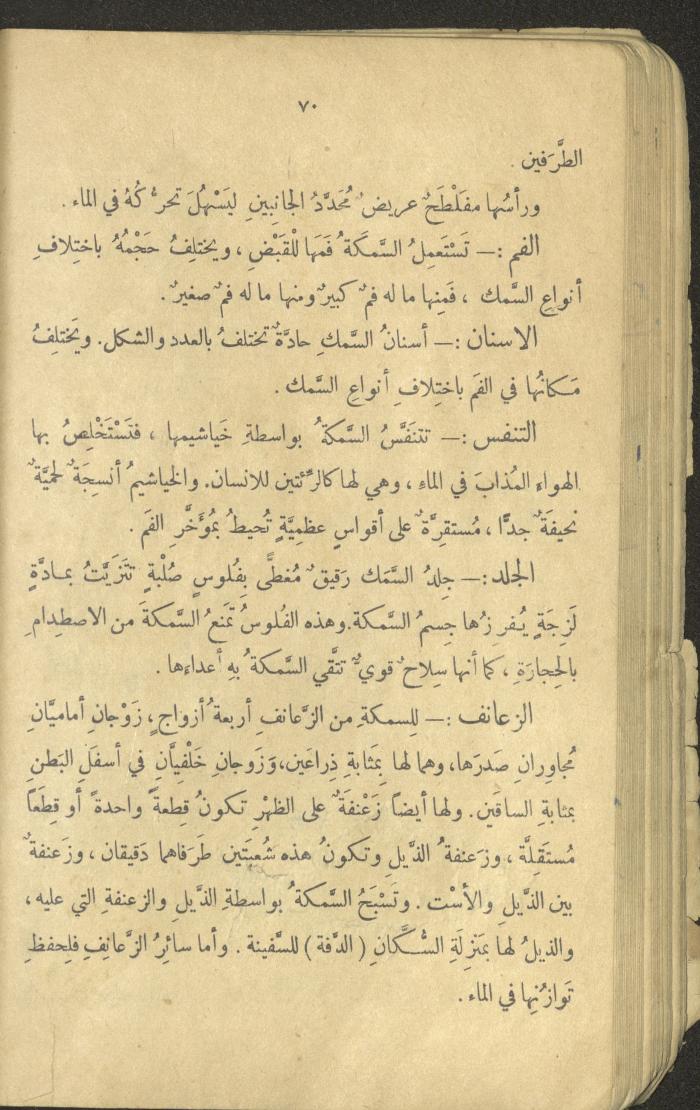 ٧٠
الطَّرَفين .
ورأسُها مفَلْطَحٌ عريضٌ مُحَدَّدُ الجانِبينِ ليَسْهُلَ تحرُّكُهُ في الماء .
الفم :— تَسْتَعمِلُ السَّمكَةُ فَمَها للْقَبْضِ ، ويختلِفُ حَجْمُهُ باختِلافِ
أنواعِ السَّمك ، فَمِنها ما له فمٌ كبيرٌ ومنها ما له فمٌ صغيرٌ .
الاسنان :— أسنانُ السَّمكِ حادَّةٌ تختلفُ بالعدد والشكل. ويَختلِفُ
مَكانُها في الفَم باختِلافِ أنواعِ السَّمك .
التنفس :— تتنَفَّسُ السَّمكةُ بواسطةِ خَياشيمها ، فتَسْتَخْلِصُ بها
الهواء المُذابَ في الماءِ ، وهي لها كالرِّئتين للانسان. والخياشيمُ أنسِجَةٌ لحميَّةٌ
نحيفَةٌ جدًّا ، مُستقِرَّةٌ على أقواسٍ عظمِيَّةٍ تُحيطُ بمُؤَخَّرِ الفَم .
الجلد :— جِلدُ السَّمَك رَقيقٌ مُغطًّى بِفُلوسٍ صُلْبةٍ تتَزَيَّتُ بمادَّةٍ
لَزِجَةٍ يُفرِزُها جِسمُ السَّمكة. وهذه الفُلوسُ تمنَعُ السَّمكةَ من الاصطِدامِ
بالحِجارَةِ ، كما أنها سِلاحٌ قويٌّ تتَّقي السَّمكةُ بهِ أعداءها .
الزعانف :— لِلسمكةِ من الزَّعانفِ أربعةُ أزواجٍ ، زَوْجانِ أماميَّانِ
مُجاوِرانِ صَدرَها، وهما لها بِمَثابةِ ذِراعَين، وَزَوجانِ خَلْفيَّانِ في أسفَلِ البَطنِ
بمثابةِ الساقَين. ولها أيضاً زَعْنفَةٌ على الظهْرِ تكونُ قِطعةً واحدةً أو قِطَعاً
مُستَقِلَّة ، وزَعنفةُ الذَّيلِ وتكونُ هذه شُعبَتَين طَرَفاهما دَقيقان ، وزَعنفةٌ
بين الذَّيلِ والأسْت . وتَسْبَحُ السَّمكةُ بواسطةِ الذَّيلِ والزعنفةِ التي عليه ،
والذيلُ لها بمَنْزِلَةِ السُّكَّانِ ( الدَّفة ) للسَّفينة . وأما سائِرُ الزَّعانِفِ فلِحفظِ
تَوازُنِها في الماء .